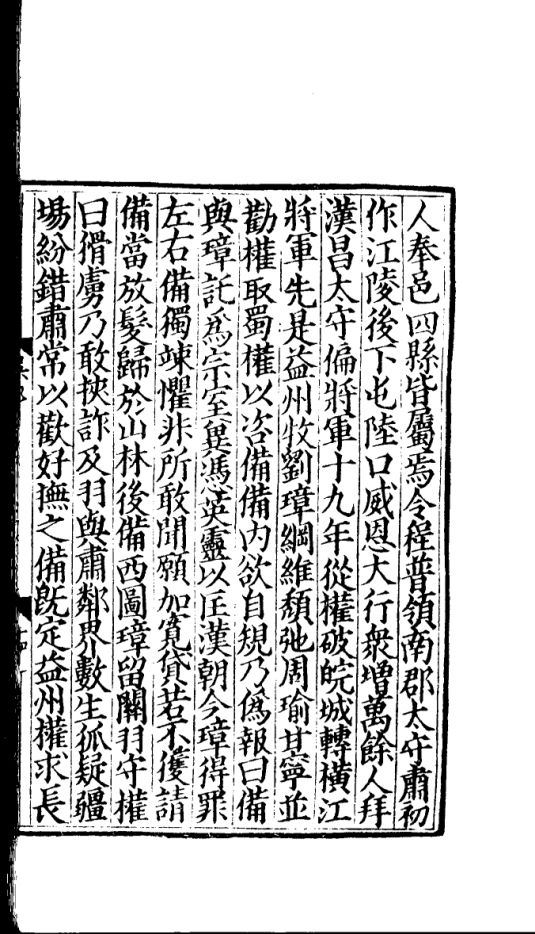 人奉邑四縣皆屬焉令程普領南郡太守肅初
作江陵後下屯陸口威恩大行衆增萬餘人拜
漢昌太守偏將軍十九年從權破皖城轉橫江
將軍先是益州牧劉璋綱維頹弛周瑜甘寧並
勸權取蜀權以咨備備内欲自規乃僞報曰備
與璋託爲宗室冀憑英靈以匡漢朝今璋得罪
左右備獨竦懼非所敢聞願加寬貸若不獲請
備當放髮歸於山林後備西圖璋留關羽守權
曰猾虜乃敢挾詐及羽與肅鄰界數生狐疑疆
場紛錯肅常以歡好撫之備既定益州權求長